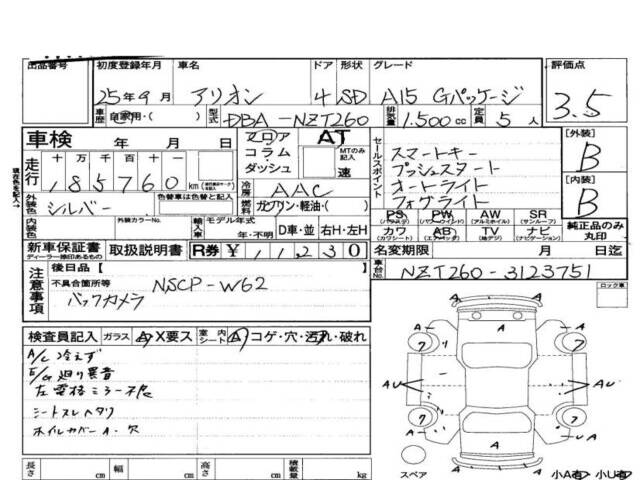 出品番号 初度登録年月 車名 ドア 形状 グレード 評価点
25年9月 アリオン 4 SD A15 Gパッケージ 3.5
車歴 自家用・( ) 型式 DBA-NZT260 排気量 1.500cc 定員 5人
車検 年 月 日 フロア コラム・ダッシュ AT MTのみ記入 速
走行 十万千百十 185760km
冷房 AAC
外装色 シルバー 色替車は色替と記入 燃料 ガソリン・軽油・( )
内装色 外装カラーNo. 輸入車 モデル年式 年・不明 D車・並 右H・左H
新車保証書 ディーラー捺印あるもの 取扱説明書 R券 ¥11230
セールスポイント
スマートキー
プッシュスタート
オートライト
フォグライト
[外装] B
[内装] B
PS (パワステ) PW (パワーウインド) AW (アルミホイル) SR (サンルーフ) 純正品のみ丸印
カワ (カワシート) AB (エアバッグ) TV (地デジ) ナビ (ナビゲーション)
名変期限 月 日迄
車台No. NZT260-3123751
現在色を記入→
注意事項 後日品【
不具合箇所等 NSCP-W62
バックカメラ
ロック車
検査員記入 ガラス A X要ス 室内シート A コゲ・穴・汚れ・破れ
A/C 冷えず
E/G廻り異音
左電格ミラー不良
シートスレヘタリ
ホイルカバーA・穴
A A A
7 7
AU AU
7 7
A A A
スペア 小A有 小U有
長さ cm 幅 cm 高さ cm 積載量 kg